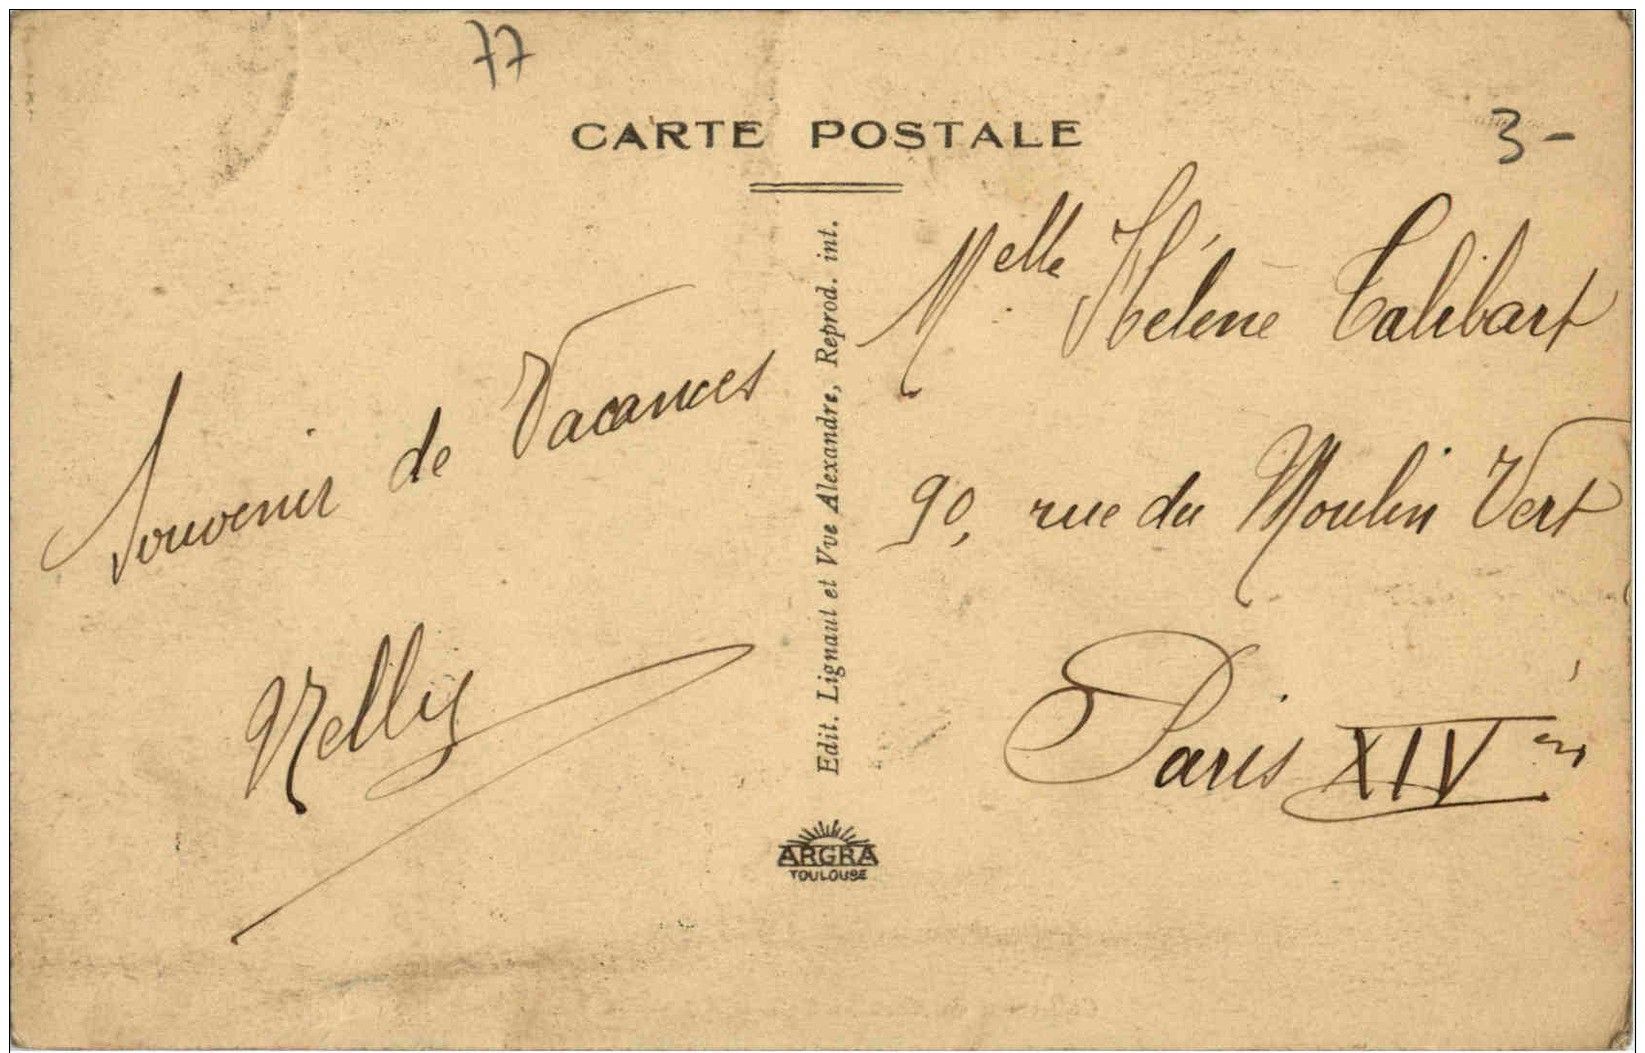 77
CARTE POSTALE
3-
Souvenir de Vacances
Nelly
Edit. Lignaut et Vve Alexandre, Reprod. int.
Melle Hélène Talibart
90, rue du Moulin Vert
Paris XIVèm
ARGRA
TOULOUSE